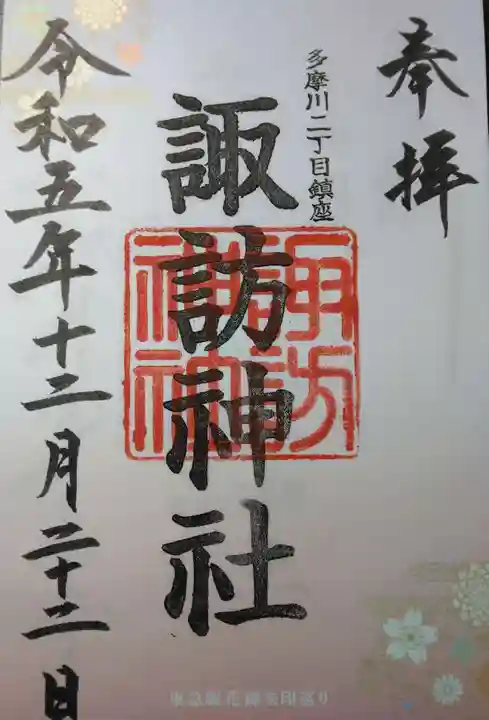 奉拝
多摩川二丁目鎮座
諏訪神社
諏訪神社
令和五年十二月二十二日
東急線花御朱印巡り